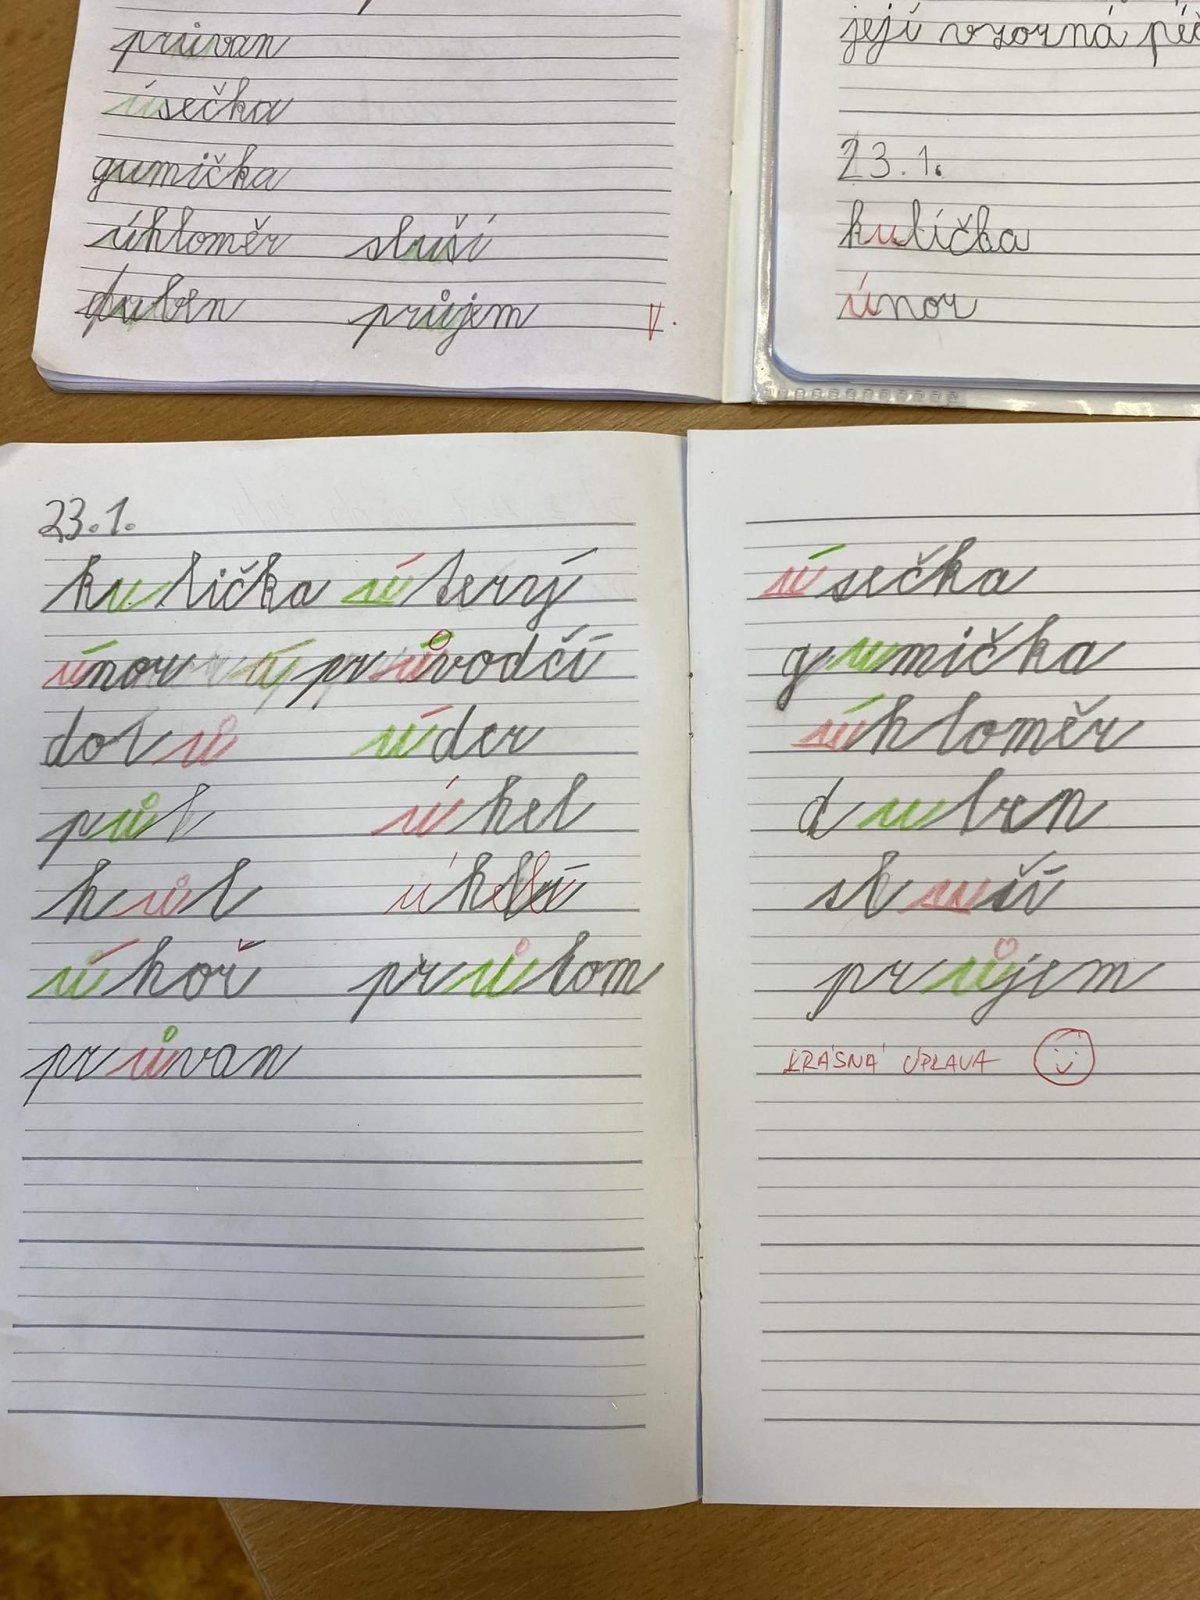 průvan
úsečka
gumička
úhloměr sluší
duben průjem
její vzorná
23.1.
kulička
únor
23.1.
kulička úterý
únor průvodčí
dolů úder
půl úhel
hůl
úhoř průlom
průvan
úsečka
gumička
úhloměr
duben
sluší
průjem
KRÁSNÁ ÚPRAVA